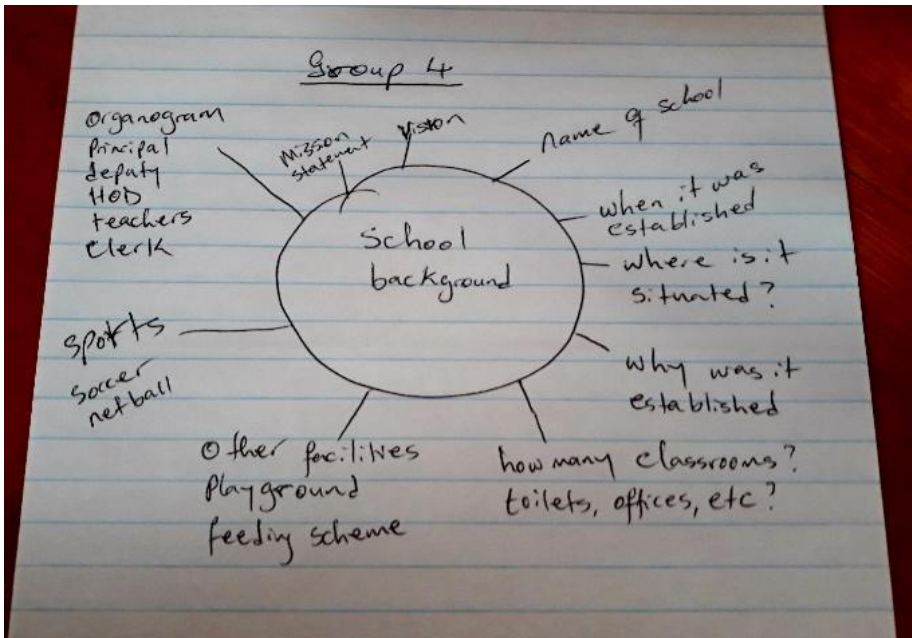 Group 4
Organogram
Principal
deputy
HOD
teachers
Clerk
Mission
statement
Vision
name of school
when it was
established
where is it
situated?
why was it
established
how many classrooms?
toilets, offices, etc?
Other facilities
Playground
feeding scheme
Sports
soccer
netball
School
background